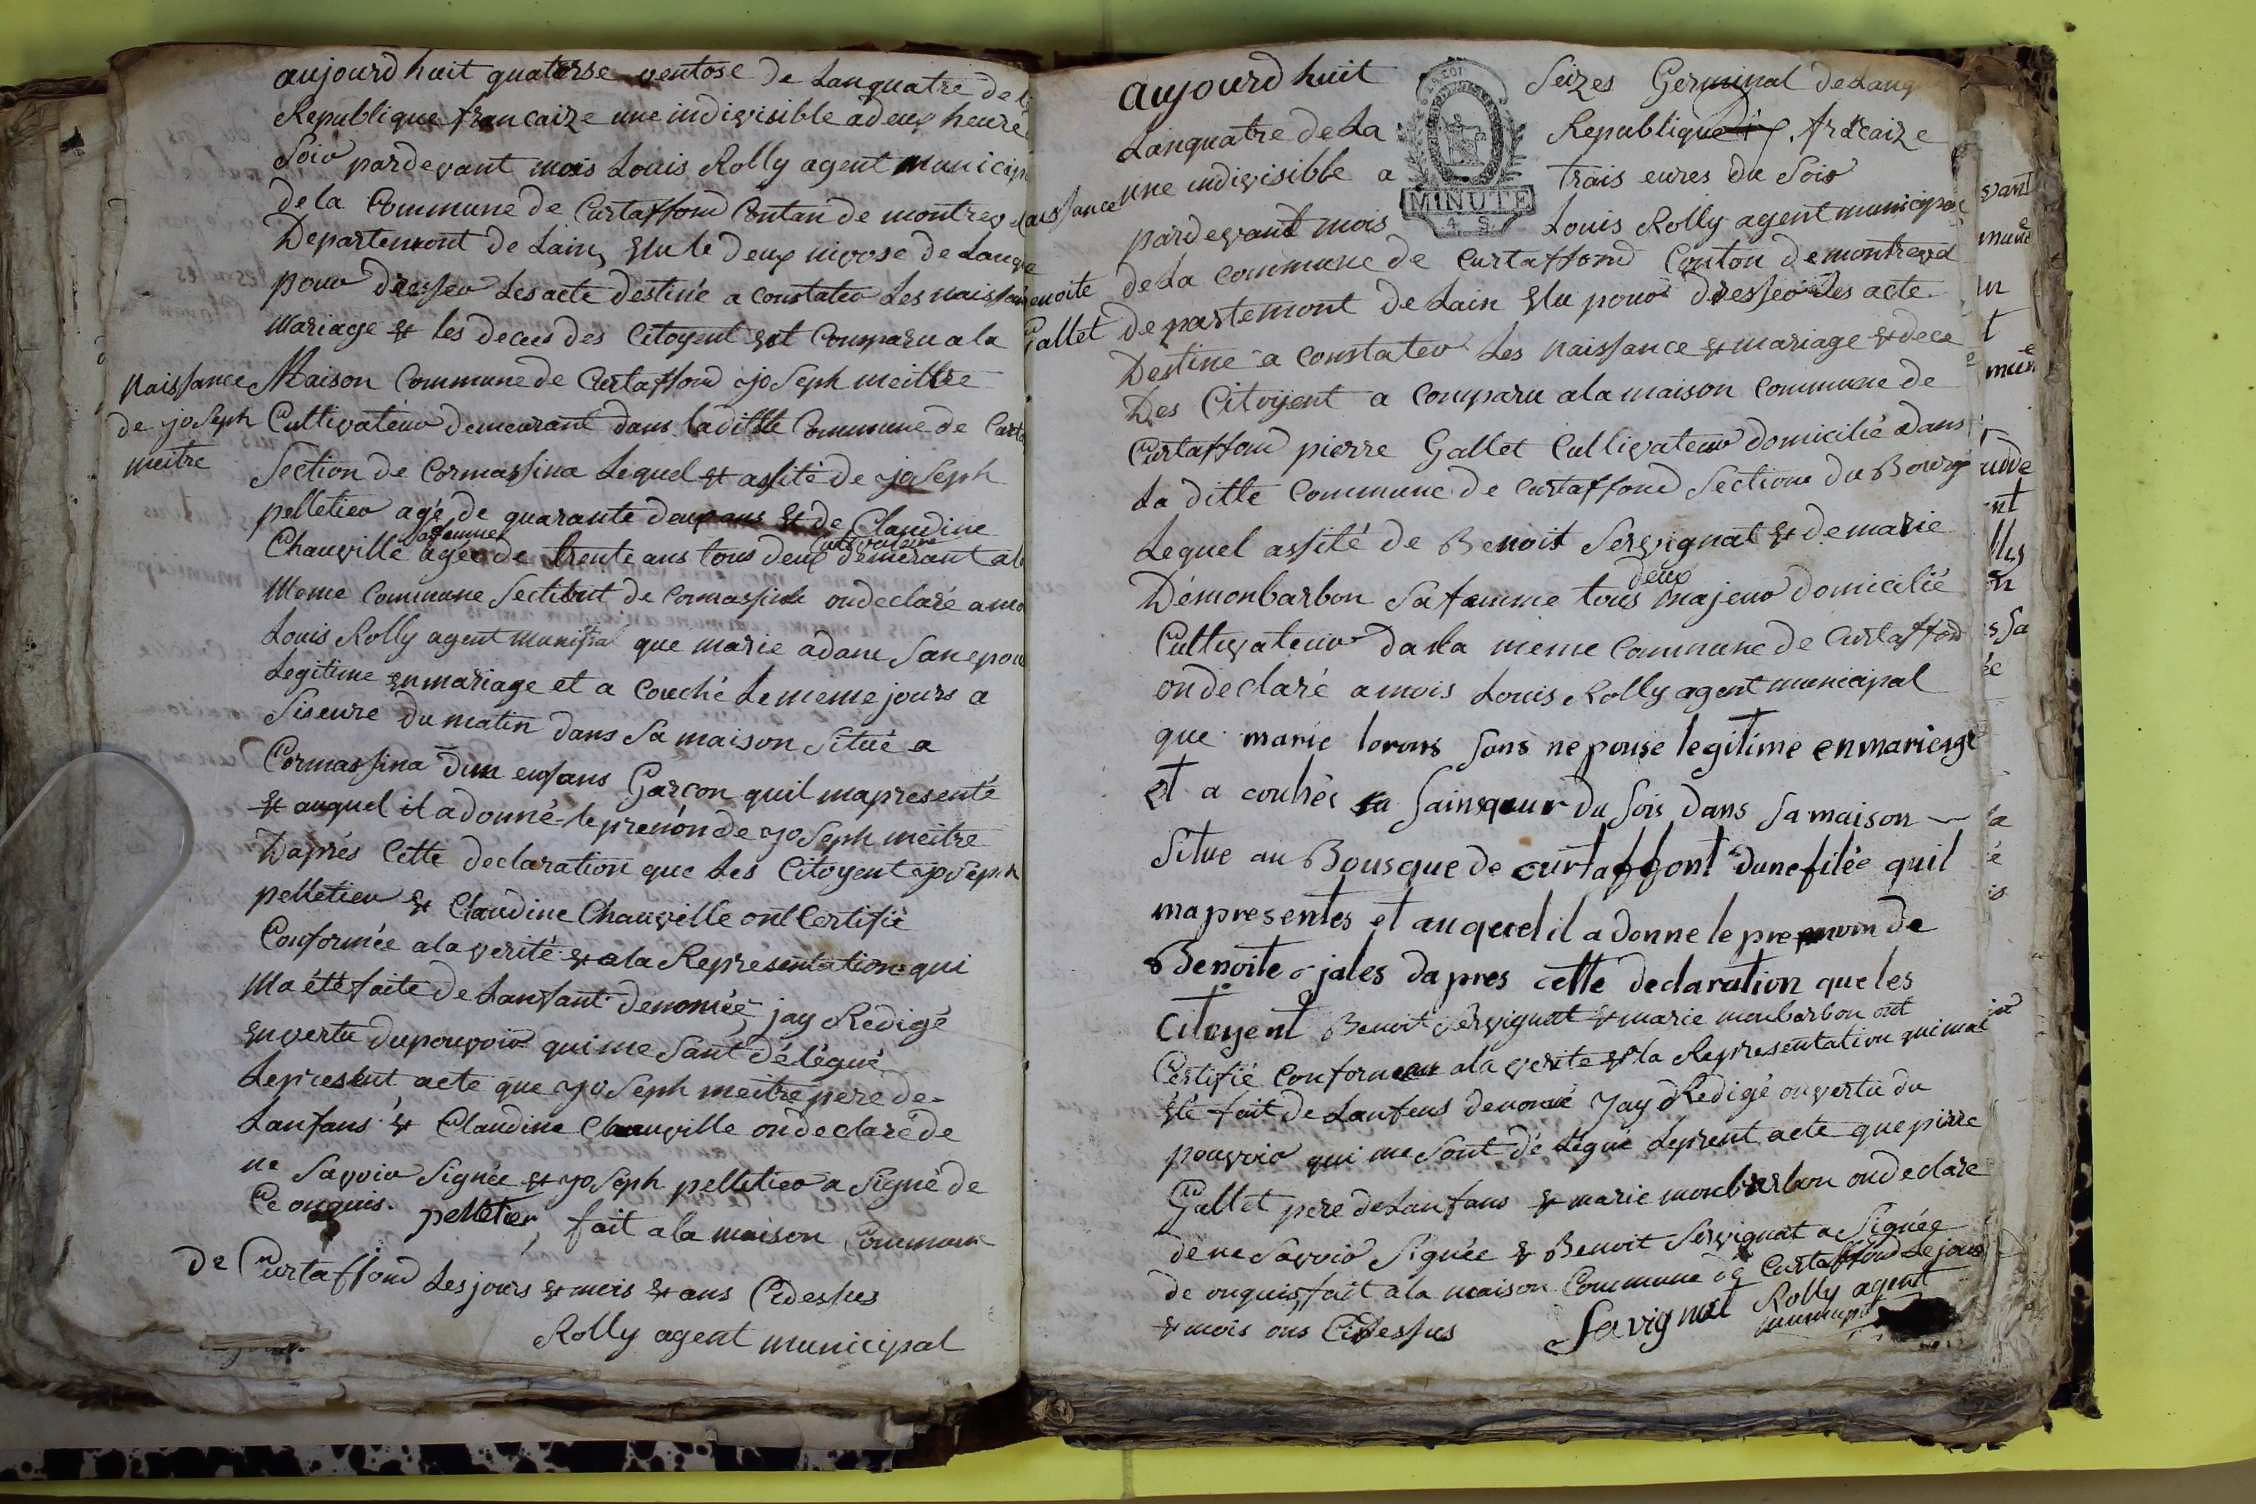 aujourd huit quatorse ventose de Lanquatre de
Republique francaize une indivisible a deux heure
Soir pardevant mois Louis Rolly agent municip
de la Commune de Curtaffond Contan de montrev
Departemont de Lain, Elu le deux nivose de Lanqu
pour dresser Les acte destiné a constater Les naissan
mariage & les deces des Citoyent est Comparu a la
naissance
de joseph
meitre
Maison Commune de Curtaffond joseph meittre
Cultivateur demeurant dans laditte Commune de Curta
Section de Cormassina Lequel & assité de joseph
pelletier agé de quarante deux ans & de Claudine
sa femme
cultivateur
Chauville agée de trente ans tous deux demerant a la
meme Commune Section de Cormassina on declaré a moi
Louis Rolly agent municipal que marie adam San epou
Legitime en mariage et a Couché Le meme jours a
Siseure du matin dans Sa maison Situé a
Cormassina d'un enfans Garçon quil mapresenté
& auquel il a donné le prenón de joseph meitre
Daprés Cette declaration que Les Citoyent joseph
pelletier & Claudine Chauville ont Certifié
Conformée a la verité & a la Representation qui
Ma été faite de Lanfant denomée, jay Redigé
En vertu du pouvoir qui me Sant délégué
Le present acte que joseph meitre pere de
Lanfans & Claudine Chauville on declaré de
ne Savoir Signée & joseph pelletier a Signé de
Ce onquis. pelletier, fait a la maison Commune
de Curtaffond Les jours & mois & ans Cidessus
Rolly agent municipal
aissance
enoite
Gallet
aujourd huit Seizes Germinal de Lanq
Lanquatre de La Republique francaize
une indivisible a trais eures du Soir
MINUTE
pardevant mois Louis Rolly agent municipal
de La commune de Curtaffond Conton de montrevel
departemont de Lain Elu pour dresser Les acte
Destiné a constater Les naissance & mariage & dece
Des Citoyent a comparu a la maison commune de
Curtaffond pierre Gallet Cultivateur domicilié dans
La ditte Commune de Curtaffond Section du Bourg
Lequel assité de Benoit Servignat & de marie
deux
Démonbarbon Sa famme tous majeur domicilié
Cultivateur da la meme Commune de Curtaffond
on declaré a mois Louis Rolly agent municipal
que marie lorons sons nepouse legitime en marieage
et a couhés a Sainqeur du Sois dans Sa maison
Situe au Bousque de curtaffont dune filée quil
mapresentes et auquel il a donne le prenom de
Benoite jales dapres cette declaration que les
Citoyent Benoit Servignat & marie monbarbon ont
Certifié conforme a la verite & la Representation qui ma
été fait de Lanfens denomé Jay Redigé onvertu du
pouvoir qui me Sont délégué Leprent acte que pirre
Gallet pere de Lanfans & marie monbarbon on declare
de ne Savoir Signée & Benoit Servignat a Signée
de onquis, fait a la maison Commune de Curtaffond Le jour
& mois ons Cidessus Savignat Rolly agent
municipal